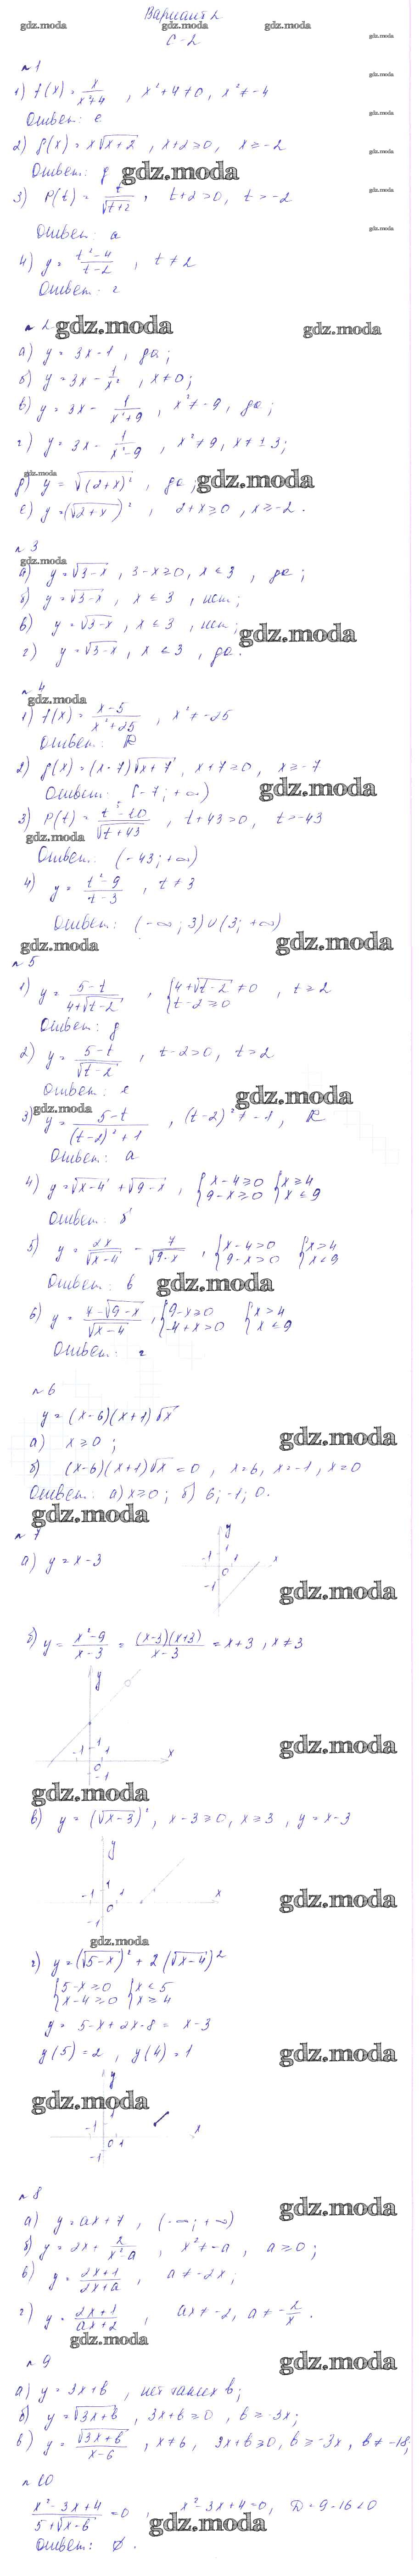 Вариант 2
С-2
№1
1) f(x) = x/(x²+4) , x²+4≠0, x²≠-4
Ответ: е
2) f(x) = x√(x+2) , x+2≥0, x≥-2
Ответ: д
gdz.moda
3) P(t) = t/√(t+2) , t+2>0, t>-2
Ответ: а
4) y = (t²-4)/(t-2) , t≠2
Ответ: г
№2
gdz.moda
а) y = 3x-1 , да;
б) y = 3x - 1/x² , x≠0;
в) y = 3x - 1/(x²+9) , x²≠-9, да;
г) y = 3x - 1/(x²-9) , x²≠9, x≠±3;
д) y = √(2+x)² , да;
gdz.moda
е) y = (√(2+x))² , 2+x≥0, x≥-2.
№3
а) y = √(3-x) , 3-x≥0, x≤3 , да;
б) y = √(3-x) , x≤3 , нет;
в) y = √(3-x) , x≤3 , нет;
gdz.moda
г) y = √(3-x) , x≤3 , да.
№4
1) f(x) = (x-5)/(x²+25) , x²≠-25
Ответ: R
2) f(x) = (x-7)√(x+7) , x+7≥0, x≥-7
Ответ: [-7; +∞)
gdz.moda
3) P(t) = (t²-10)/√(t+43) , t+43>0, t>-43
Ответ: (-43; +∞)
4) y = (t²-9)/(t-3) , t≠3
Ответ: (-∞; 3)∪(3; +∞)
gdz.moda
№5
1) y = (5-t)/(4+√(t-2)) , {4+√(t-2)≠0 , t-2≥0 , t≥2
Ответ: д
2) y = (5-t)/√(t-2) , t-2>0, t>2
Ответ: е
gdz.moda
3) y = (5-t)/((t-2)²+1) , (t-2)²≠-1 , R
Ответ: а
4) y = √(x-4) + √(9-x) , {x-4≥0 9-x≥0 {x≥4 x≤9
Ответ: б
5) y = 2x/√(x-4) - 7/√(9-x) , {x-4>0 9-x>0 {x>4 x<9
Ответ: в
gdz.moda
6) y = (4-√(9-x))/√(x-4) , {9-x≥0 -4+x>0 {x>4 x≤9
Ответ: г
№6
y = (x-6)(x+1)√x
а) x≥0;
gdz.moda
б) (x-6)(x+1)√x = 0 , x=6, x=-1, x=0
Ответ: а) x≥0; б) 6; -1; 0.
gdz.moda
№7
а) y = x-3
gdz.moda
б) y = (x²-9)/(x-3) = (x-3)(x+3)/(x-3) = x+3 , x≠3
gdz.moda
в) y = (√(x-3))² , x-3≥0, x≥3 , y = x-3
gdz.moda
г) y = (√(5-x))² + 2(√(x-4))²
{5-x≥0 x-4≥0 {x≤5 x≥4
y = 5-x+2x-8 = x-3
y(5) = 2 , y(4) = 1
gdz.moda
№8
а) y = ax+7 , (-∞; +∞)
б) y = 2x + 2/(x²-a) , x²≠-a , a≥0;
в) y = (2x+1)/(2x+a) , a≠-2x;
г) y = (2x+1)/(ax+2) , ax≠-2, a≠-2/x.
gdz.moda
№9
а) y = 3x+b , нет таких b;
б) y = √(3x+b) , 3x+b≥0 , b≥-3x;
в) y = √(3x+b)/(x-6) , x≠6, 3x+b≥0, b≥-3x, b≠-18;
№10
(x²-3x+4)/(5+√(x-6)) = 0 , x²-3x+4=0, D=9-16<0
gdz.moda
Ответ: ∅.